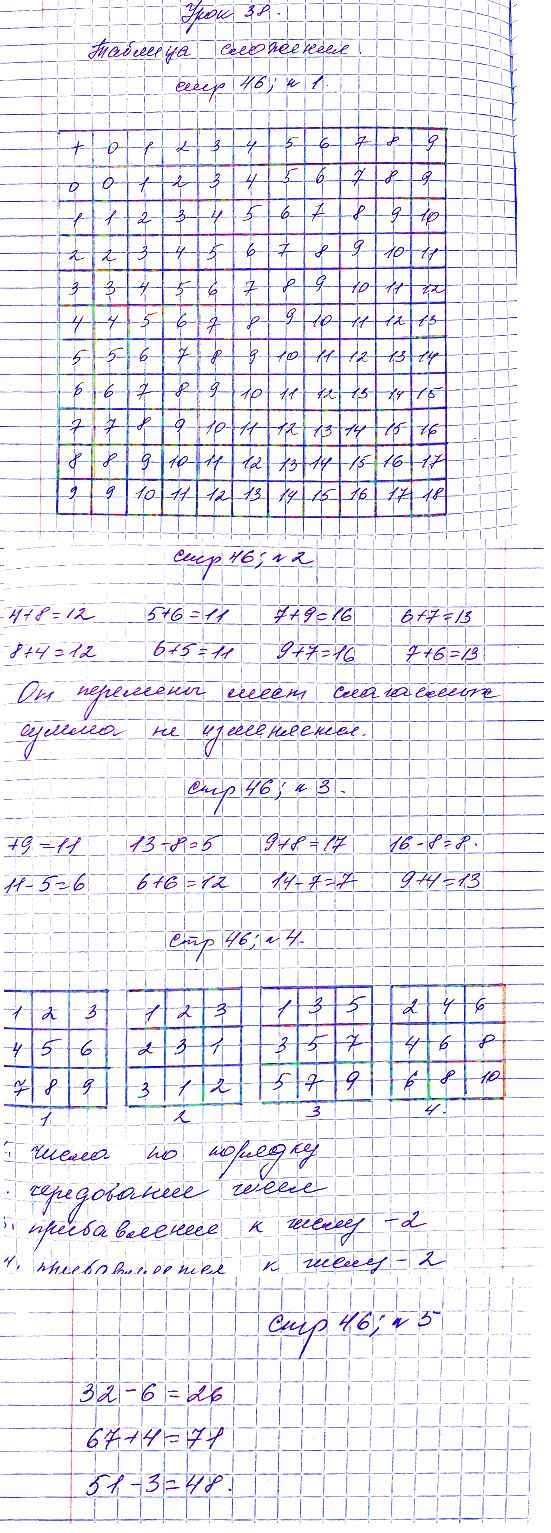 Урок 38.
Таблица сложения.
стр 46; н 1.
+ 0 1 2 3 4 5 6 7 8 9
0 0 1 2 3 4 5 6 7 8 9
1 1 2 3 4 5 6 7 8 9 10
2 2 3 4 5 6 7 8 9 10 11
3 3 4 5 6 7 8 9 10 11 12
4 4 5 6 7 8 9 10 11 12 13
5 5 6 7 8 9 10 11 12 13 14
6 6 7 8 9 10 11 12 13 14 15
7 7 8 9 10 11 12 13 14 15 16
8 8 9 10 11 12 13 14 15 16 17
9 9 10 11 12 13 14 15 16 17 18
стр 46; н 2
4+8=12 5+6=11 7+9=16 6+7=13
8+4=12 6+5=11 9+7=16 7+6=13
От перемены мест слагаемых
сумма не изменяется.
стр 46; н 3.
+9=11 13-8=5 9+8=17 16-8=8.
11-5=6 6+6=12 14-7=7 9+4=13
стр 46; н 4.
1 2 3 1 2 3 1 3 5 2 4 6
4 5 6 2 3 1 3 5 7 4 6 8
7 8 9 3 1 2 5 7 9 6 8 10
1 2 3 4.
числа по порядку
чередование чисел
прибавление к числу - 2
4. прибавляется к числу - 2
стр 46; н 5
32-6=26
67+4=71
51-3=48.